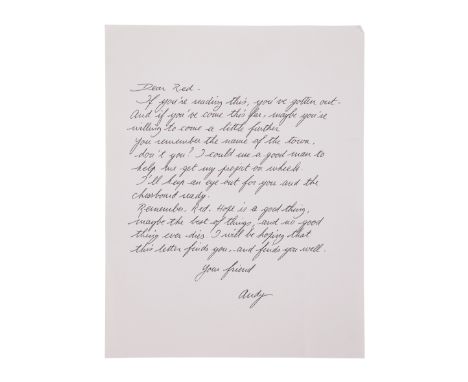 Dear Red.
If you're reading this, you've gotten out.
And if you've come this far, maybe you're
willing to come a little further.
You remember the name of the town,
don't you? I could use a good man to
help me get my project on wheels.
I'll keep an eye out for you and the
chessboard ready.
Remember, Red. Hope is a good thing,
maybe the best of things, and no good
thing ever dies. I will be hoping that
this letter finds you, and finds you well.
Your friend
Andy